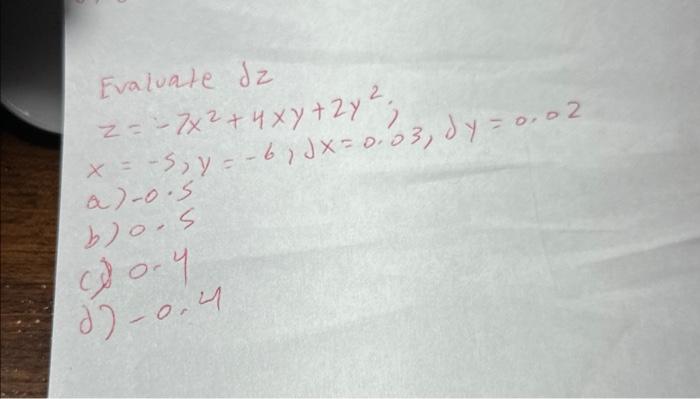 Evaluate dz
z = -7x² + 4xy + 2y²;
x = -5, y = -6, dx = 0.03, dy = 0.02
a) -0.5
b) 0.5
c) 0.4
d) -0.4